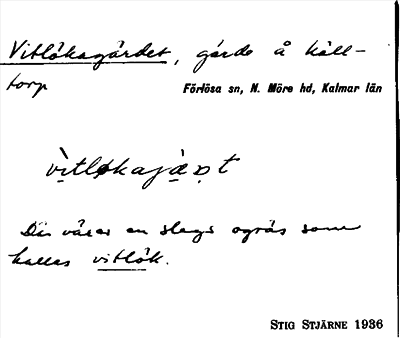 Vitlöksgärdet, gärde å Käll-
torp
Förlösa sn, N. Möre hd, Kalmar län
Där växer en slags ogräs som
kallas vitlök.
STIG STJÄRNE 1936